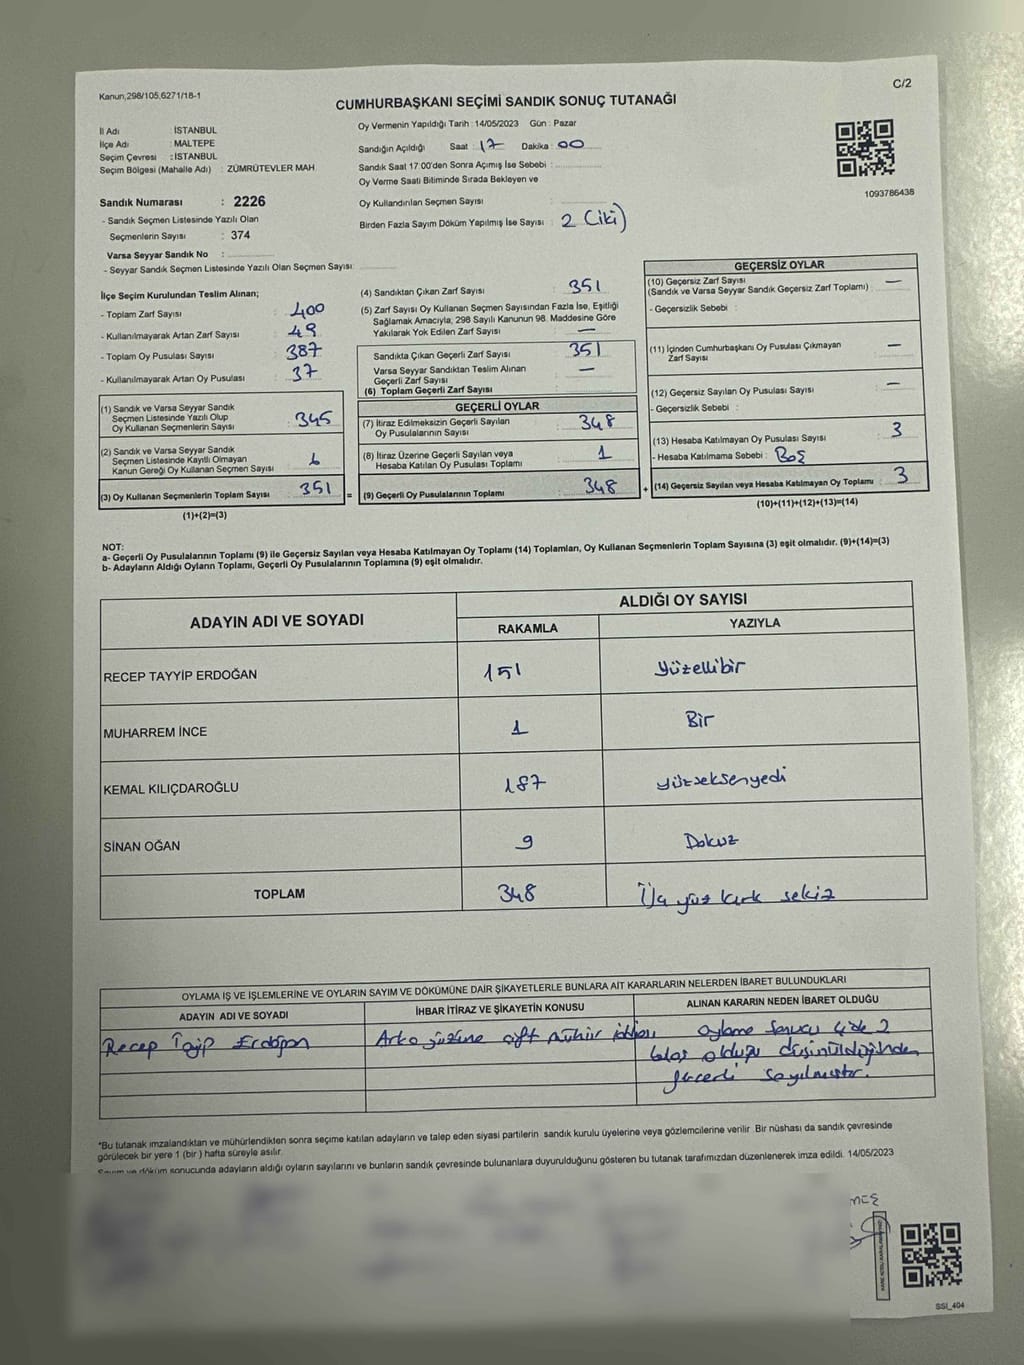 Kanun,298/105,6271/18-1
C/2
CUMHURBAŞKANI SEÇİMİ SANDIK SONUÇ TUTANAĞI
İl Adı : İSTANBUL
İlçe Adı : MALTEPE
Seçim Çevresi : İSTANBUL
Seçim Bölgesi (Mahalle Adı) : ZÜMRÜTEVLER MAH
Sandık Numarası : 2226
- Sandık Seçmen Listesinde Yazılı Olan
Seçmenlerin Sayısı : 374
Varsa Seyyar Sandık No :
- Seyyar Sandık Seçmen Listesinde Yazılı Olan Seçmen Sayısı:
Oy Vermenin Yapıldığı Tarih : 14/05/2023 Gün : Pazar
Sandığın Açıldığı Saat : 17 Dakika : 00
Sandık Saat 17:00'den Sonra Açımış İse Sebebi :
Oy Verme Saati Bitiminde Sırada Bekleyen ve
Oy Kullandırılan Seçmen Sayısı :
Birden Fazla Sayım Döküm Yapılmış İse Sayısı : 2 (iki)
1093786438
İlçe Seçim Kurulundan Teslim Alınan;
- Toplam Zarf Sayısı : 400
- Kullanılmayarak Artan Zarf Sayısı : 49
- Toplam Oy Pusulası Sayısı : 387
- Kullanılmayarak Artan Oy Pusulası : 37
(1) Sandık ve Varsa Seyyar Sandık
Seçmen Listesinde Yazılı Olup
Oy Kullanan Seçmenlerin Sayısı : 345
(2) Sandık ve Varsa Seyyar Sandık
Seçmen Listesinde Kayıtlı Olmayan
Kanun Gereği Oy Kullanan Seçmen Sayısı : 6
(3) Oy Kullanan Seçmenlerin Toplam Sayısı : 351 =
(1)+(2)=(3)
(4) Sandıktan Çıkan Zarf Sayısı : 351
(5) Zarf Sayısı Oy Kullanan Seçmen Sayısından Fazla İse, Eşitliği
Sağlamak Amacıyla, 298 Sayılı Kanunun 98. Maddesine Göre
Yakılarak Yok Edilen Zarf Sayısı : —
Sandıkta Çıkan Geçerli Zarf Sayısı : 351
Varsa Seyyar Sandıktan Teslim Alınan
Geçerli Zarf Sayısı : —
(6) Toplam Geçerli Zarf Sayısı :
GEÇERLİ OYLAR
(7) İtiraz Edilmeksizin Geçerli Sayılan
Oy Pusulalarının Sayısı : 348
(8) İtiraz Üzerine Geçerli Sayılan veya
Hesaba Katılan Oy Pusulası Toplamı : 1
(9) Geçerli Oy Pusulalarının Toplamı : 348 +
GEÇERSİZ OYLAR
(10) Geçersiz Zarf Sayısı
(Sandık ve Varsa Seyyar Sandık Geçersiz Zarf Toplamı) : —
- Geçersizlik Sebebi :
(11) İçinden Cumhurbaşkanı Oy Pusulası Çıkmayan
Zarf Sayısı : —
(12) Geçersiz Sayılan Oy Pusulası Sayısı : —
- Geçersizlik Sebebi :
(13) Hesaba Katılmayan Oy Pusulası Sayısı : 3
- Hesaba Katılmama Sebebi : Boş
(14) Geçersiz Sayılan veya Hesaba Katılmayan Oy Toplamı : 3
(10)+(11)+(12)+(13)=(14)
NOT:
a- Geçerli Oy Pusulalarının Toplamı (9) ile Geçersiz Sayılan veya Hesaba Katılmayan Oy Toplamı (14) Toplamları, Oy Kullanan Seçmenlerin Toplam Sayısına (3) eşit olmalıdır. (9)+(14)=(3)
b- Adayların Aldığı Oyların Toplamı, Geçerli Oy Pusulalarının Toplamına (9) eşit olmalıdır.
ADAYIN ADI VE SOYADI
ALDIĞI OY SAYISI
RAKAMLA YAZIYLA
RECEP TAYYİP ERDOĞAN 151 Yüzellibir
MUHARREM İNCE 1 Bir
KEMAL KILIÇDAROĞLU 187 yüzseksenyedi
SİNAN OĞAN 9 Dokuz
TOPLAM 348 Üç yüz kırk sekiz
OYLAMA İŞ VE İŞLEMLERİNE VE OYLARIN SAYIM VE DÖKÜMÜNE DAİR ŞİKAYETLERLE BUNLARA AİT KARARLARIN NELERDEN İBARET BULUNDUKLARI
ADAYIN ADI VE SOYADI İHBAR İTİRAZ VE ŞİKAYETİN KONUSU ALINAN KARARIN NEDEN İBARET OLDUĞU
Recep Tayip Erdoğan Arka yüzüne çift mühür iddiası oylama sonucu 2
olduğu düşünüldüğünden
geçerli sayılmıştır.
*Bu tutanak imzalandıktan ve mühürlendikten sonra seçime katılan adayların ve talep eden siyasi partilerin sandık kurulu üyelerine veya gözlemcilerine verilir .Bir nüshası da sandık çevresinde
görülecek bir yere 1 (bir ) hafta süreyle asılır.
Sayım ve döküm sonucunda adayların aldığı oyların sayılarını ve bunların sandık çevresinde bulunanlara duyurulduğunu gösteren bu tutanak tarafımızdan düzenlenerek imza edildi. 14/05/2023
SSİ_404